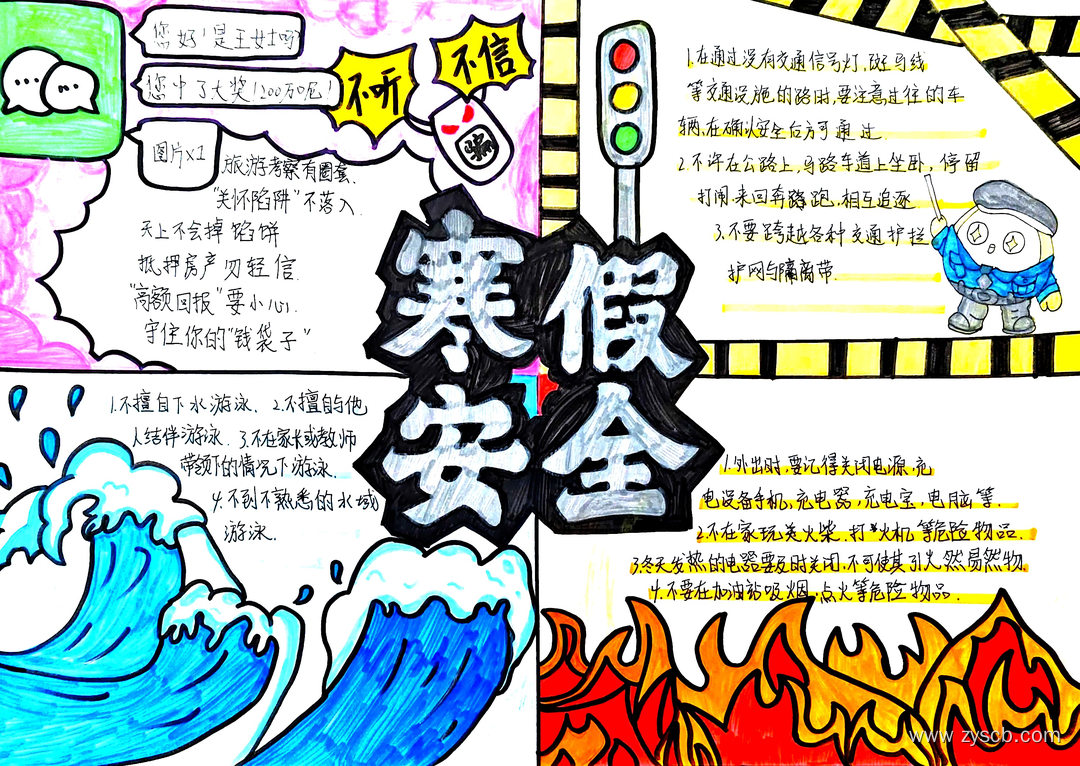 您好!是王女士吗?
您中了大奖1200万呢!
图片x1
不听
不信
骗
旅游考察有圈套、
"关怀陷阱"不落入.
天上不会掉馅饼
抵押房产勿轻信.
"高额回报"要小心.
守住你的"钱袋子"
寒假
安全
1.在通过没有交通信号灯,斑马线
等交通设施的路时,要注意过往的车
辆,在确认安全后方可通过.
2.不许在公路上,马路车道上坐卧,停留
打闹.来回奔跑,相互追逐
3.不要跨越各种交通护拦
护网与隔离带.
1.不擅自下水游泳. 2.不擅自与他
人结伴游泳. 3.不在家长或教师
带领下的情况下游泳.
4.不到不熟悉的水域
游泳.
1.外出时,要记得关闭电源,充
电设备手机、充电器,充电宝,电脑等.
2.不在家玩类火柴,打火机等危险物品.
3.冬天发热的电器要及时关闭,不可使其引火然易然物.
4.不要在加油站吸烟,点火等危险物品.
www.zyscb.com